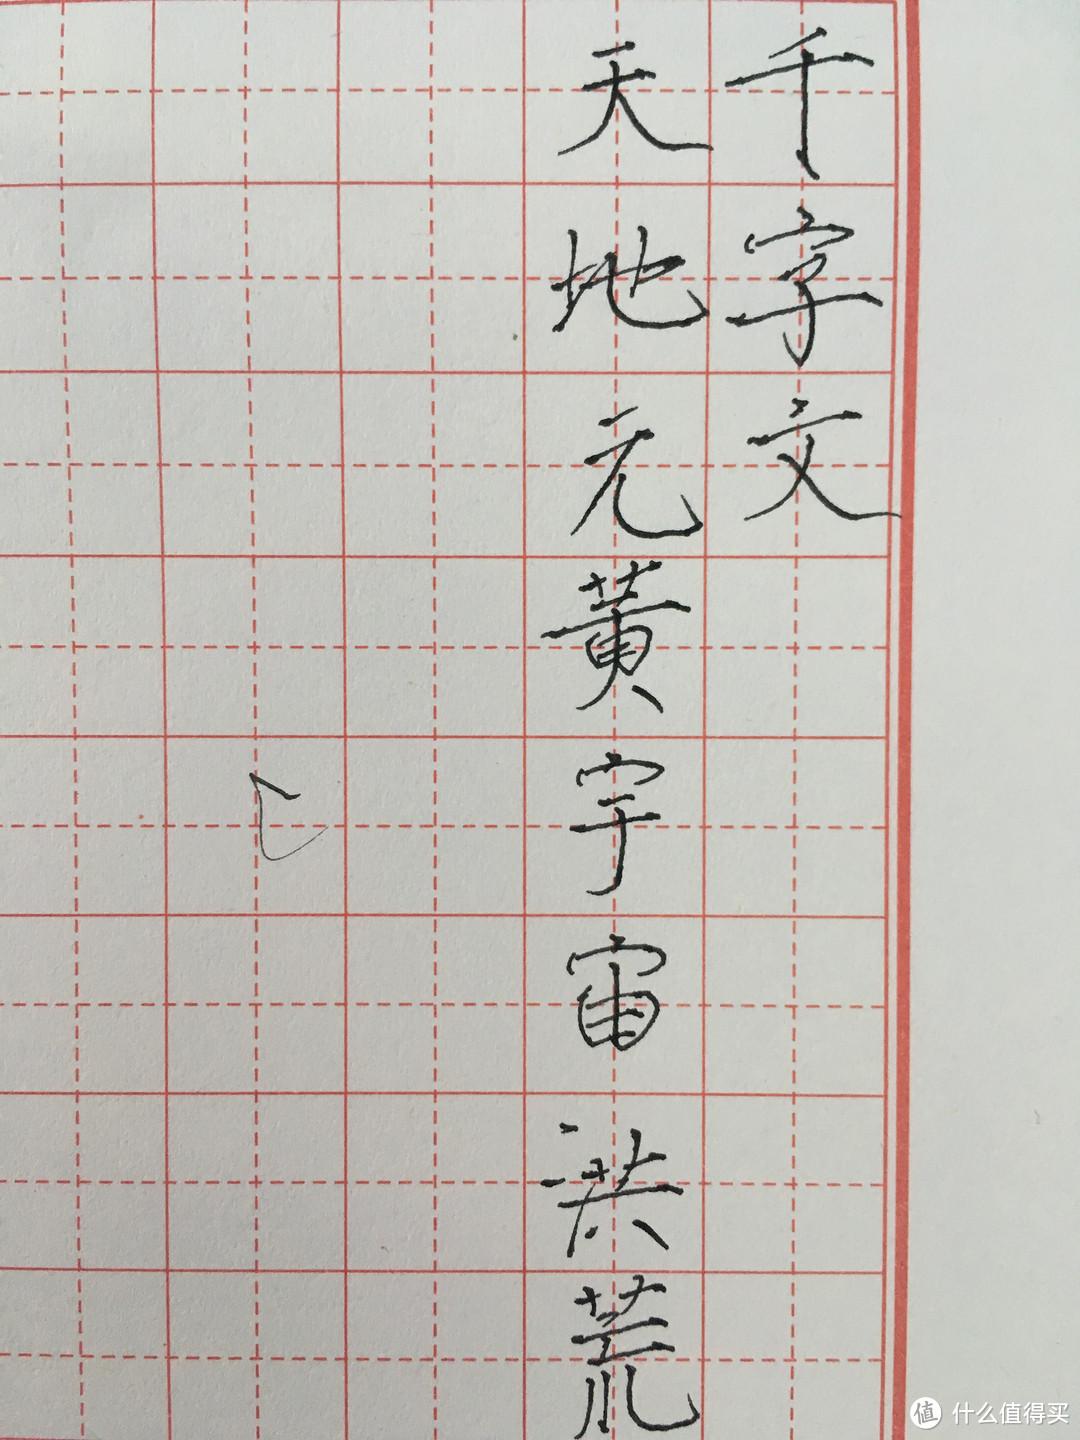 千字文
天地元黃宇宙洪荒
值 什么值得买